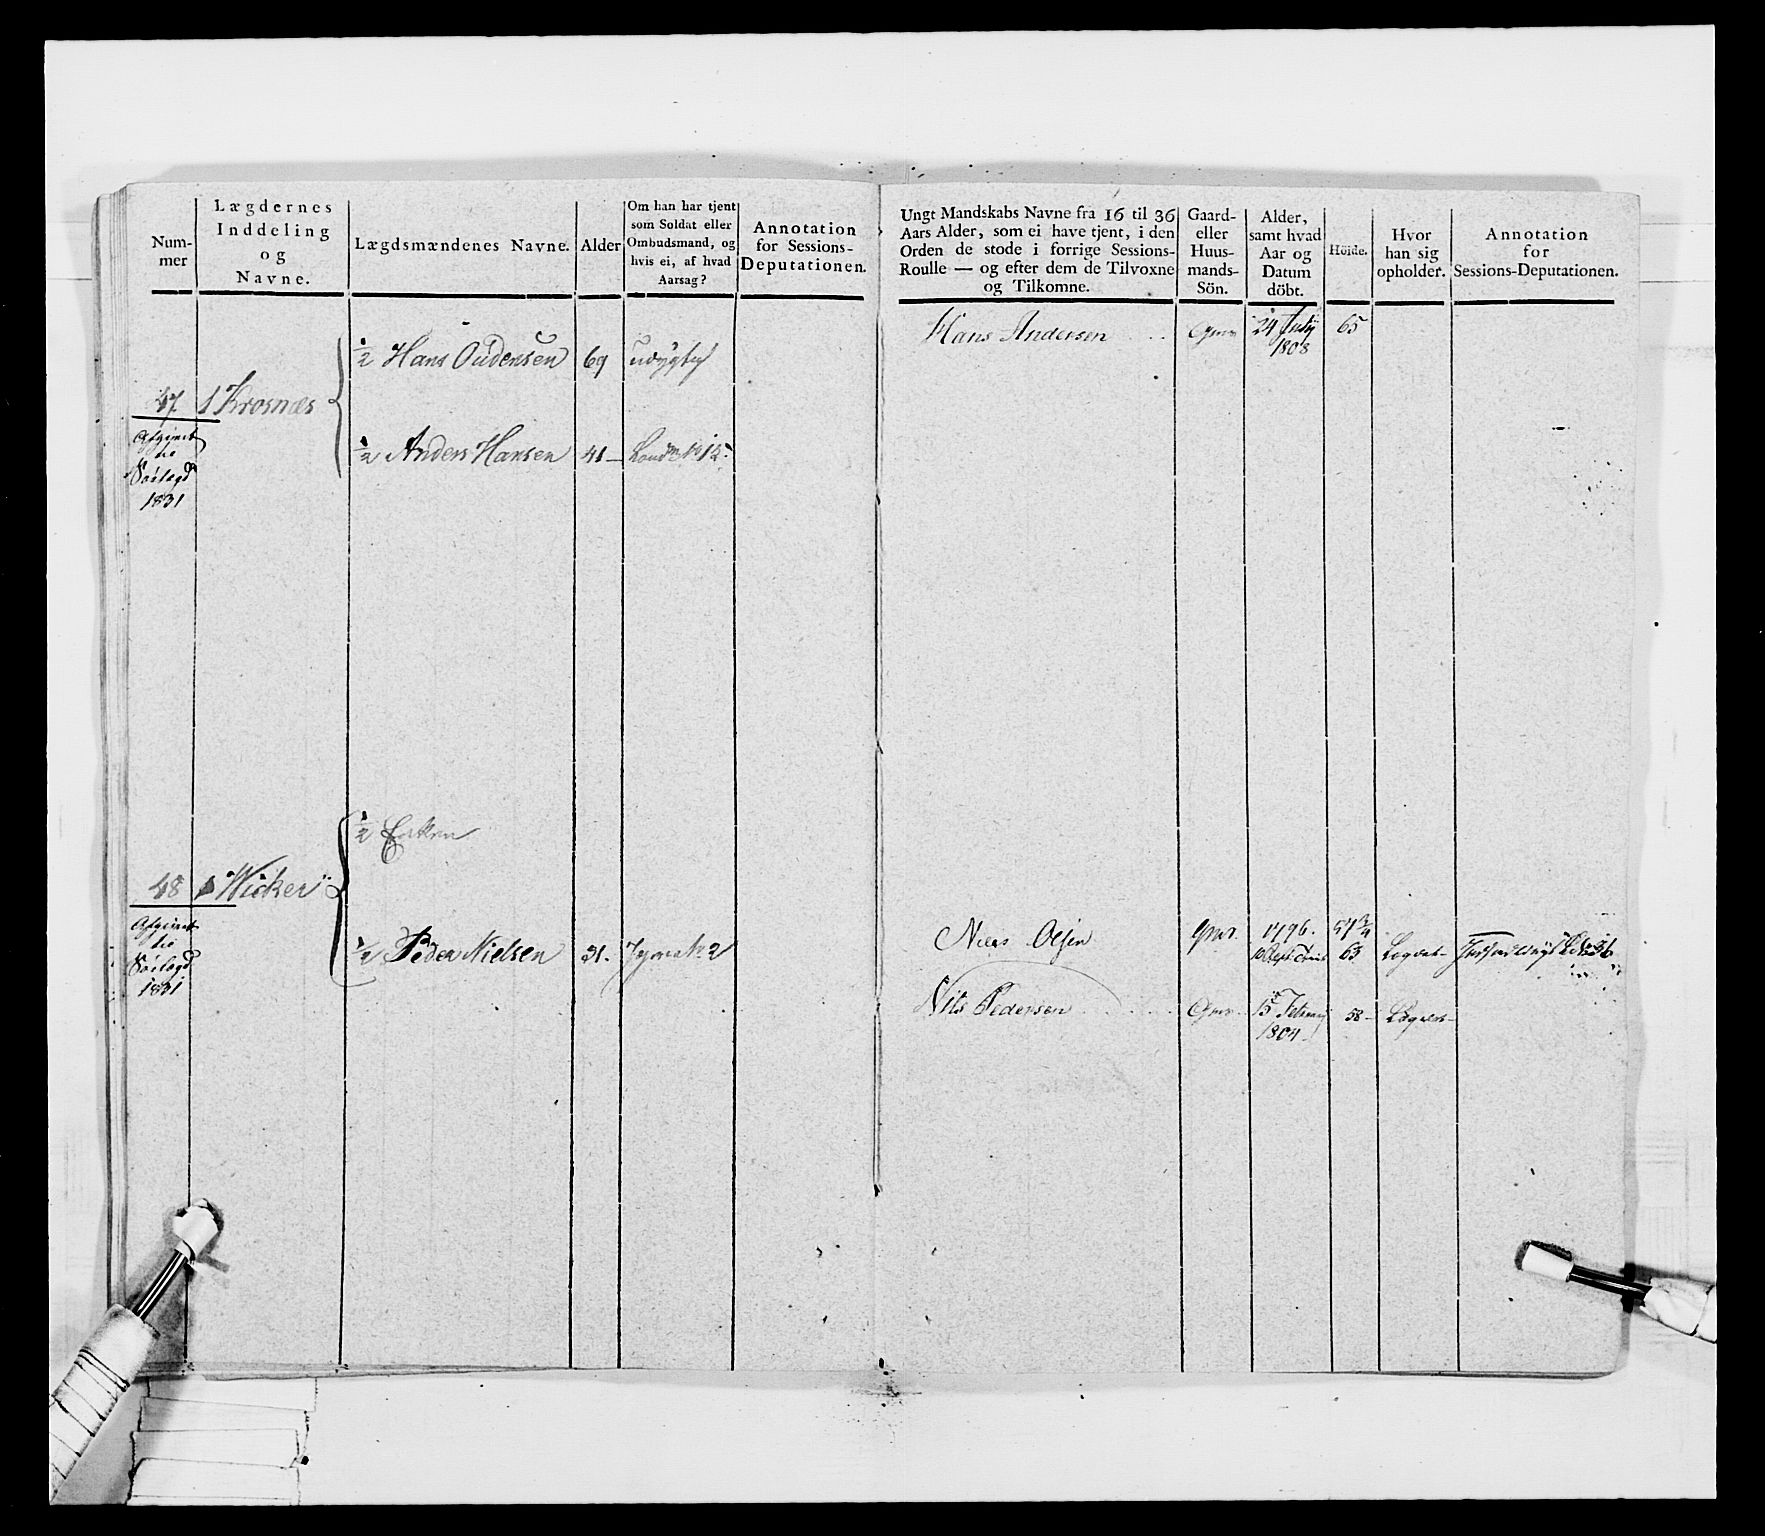 Num-
mer
Lægdernes
Inddeling
og
Navne.
Lægdsmændenes Navne.
Alder
Om han har tjent
som Soldat eller
Ombudsmand, og
hvis ei, af hvad
Aarsag?
Annotation
for Sessions-
Deputationen.
½ Hans Oudensen 69
47. 1 Krosnæs
½ Anders Hansen 41
Afgivet
til
Söelægd
1831
½ Enken
48 1 Wicker
½ Peder Nielsen 31.
Afgivet
til
Söelægd
1831
Ungt Mandskabs Navne fra 16 til 36
Aars Alder, som ei have tjent, i den
Orden de stode i forrige Sessions-
Roulle — og efter dem de Tilvoxne
og Tilkomne.
Gaard-
eller
Huus-
mands-
Sön.
Alder,
samt hvad
Aar og
Datum
döbt.
Höide.
Hvor
han sig
opholder.
Annotation
for
Sessions-Deputationen.
Hans Andersen Gmr 24 July 65
1808
Niels Olsen Gmr. 1796. 57 ¾
63
Nils Pedersen Gmr 15 February 58
1804